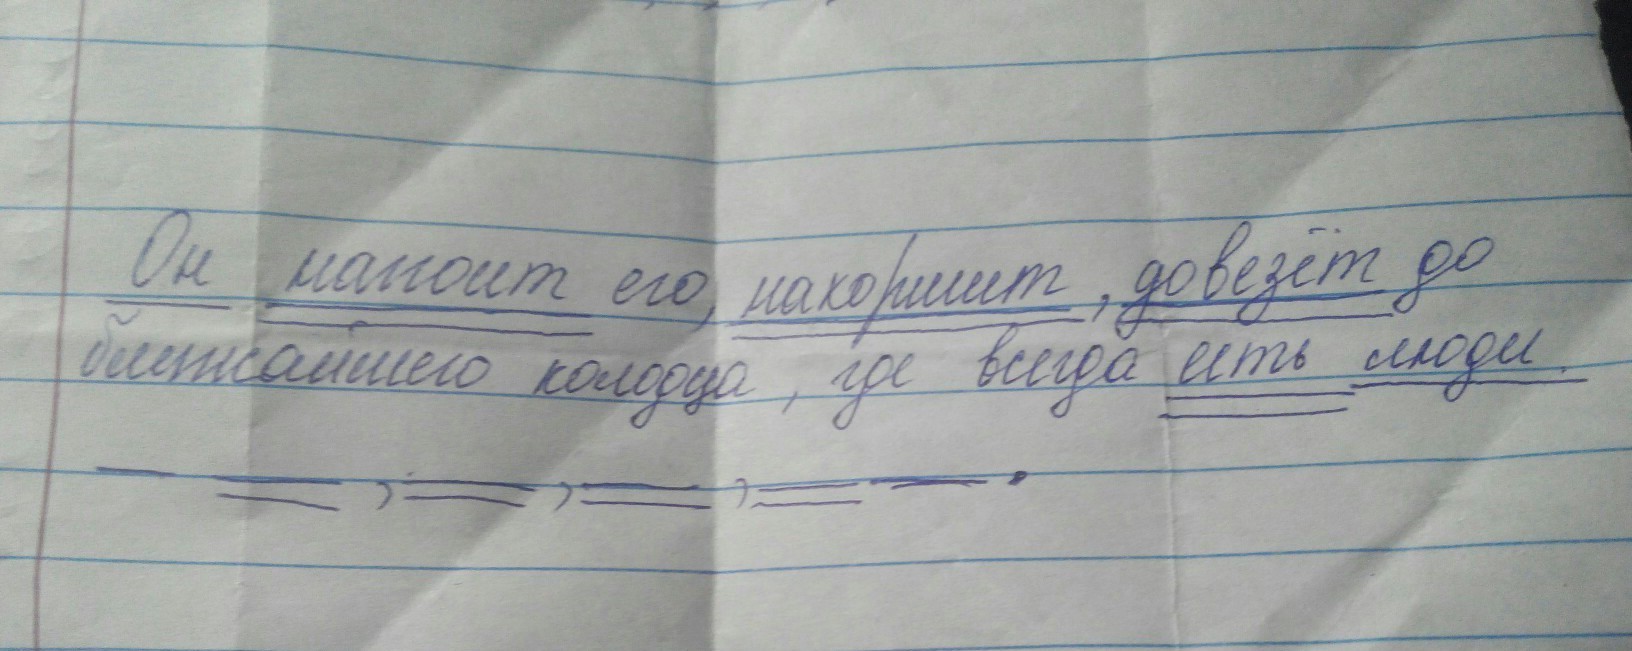 Он напоит его, накормит, довезёт до
ближайшего колодца, где всегда есть люди.